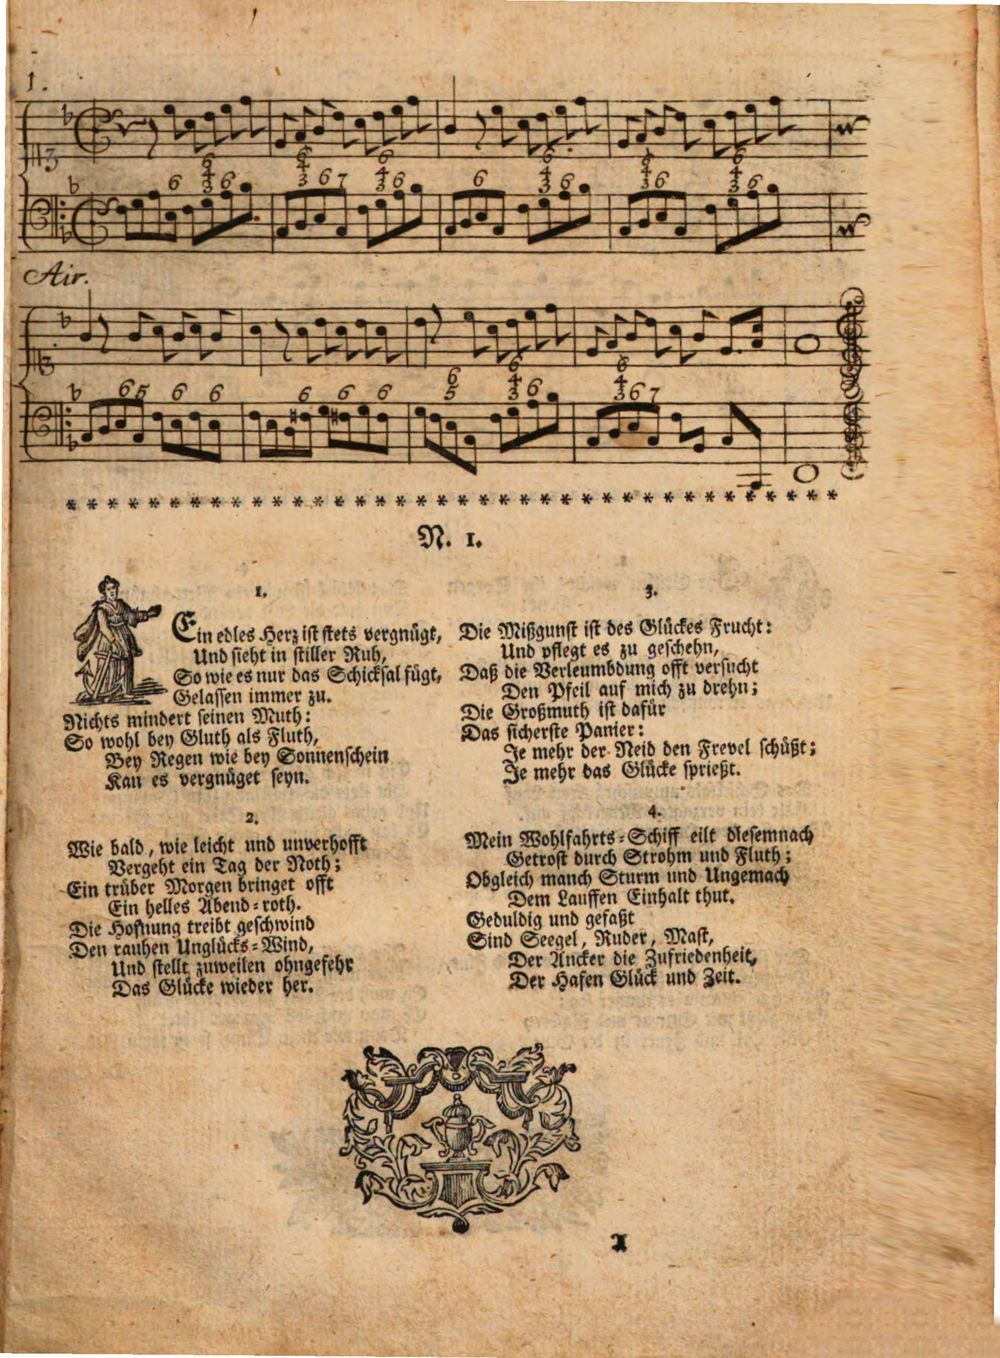 1.
6 6 4 3 6 6 4 3 6 7 6 4 3 6 6 6 4 3 6 6 4 3 6 6 4 3 6
Air.
6 5 6 6 6 6 6 6 5 6 4 3 6 6 4 3 6 7
N. 1.
1.
Ein edles Herz ist stets vergnügt,
Und sieht in stiller Ruh,
So wie es nur das Schicksal fügt,
Gelassen immer zu.
Nichts mindert seinen Muth:
So wohl bey Gluth als Fluth,
Bey Regen wie bey Sonnenschein
Kan es vergnüget seyn.
2.
Wie bald, wie leicht und unverhofft
Vergeht ein Tag der Noth;
Ein trüber Morgen bringet offt
Ein helles Abend-roth.
Die Hofnung treibt geschwind
Den rauhen Unglücks-Wind,
Und stellt zuweilen ohngefehr
Das Glücke wieder her.
3.
Die Mißgunst ist des Glückes Frucht:
Und pflegt es zu geschehn,
Daß die Verleumbdung offt versucht
Den Pfeil auf mich zu drehn;
Die Großmuth ist dafür
Das sicherste Panier:
Je mehr der Neid den Frevel schüßt;
Je mehr das Glücke sprießt.
4.
Mein Wohlfahrts-Schiff eilt diesemnach
Getrost durch Strohm und Fluth;
Obgleich manch Sturm und Ungemach
Dem Lauffen Einhalt thut.
Geduldig und gefaßt
Sind Seegel, Ruder, Mast,
Der Ancker die Zufriedenheit,
Der Hafen Glück und Zeit.